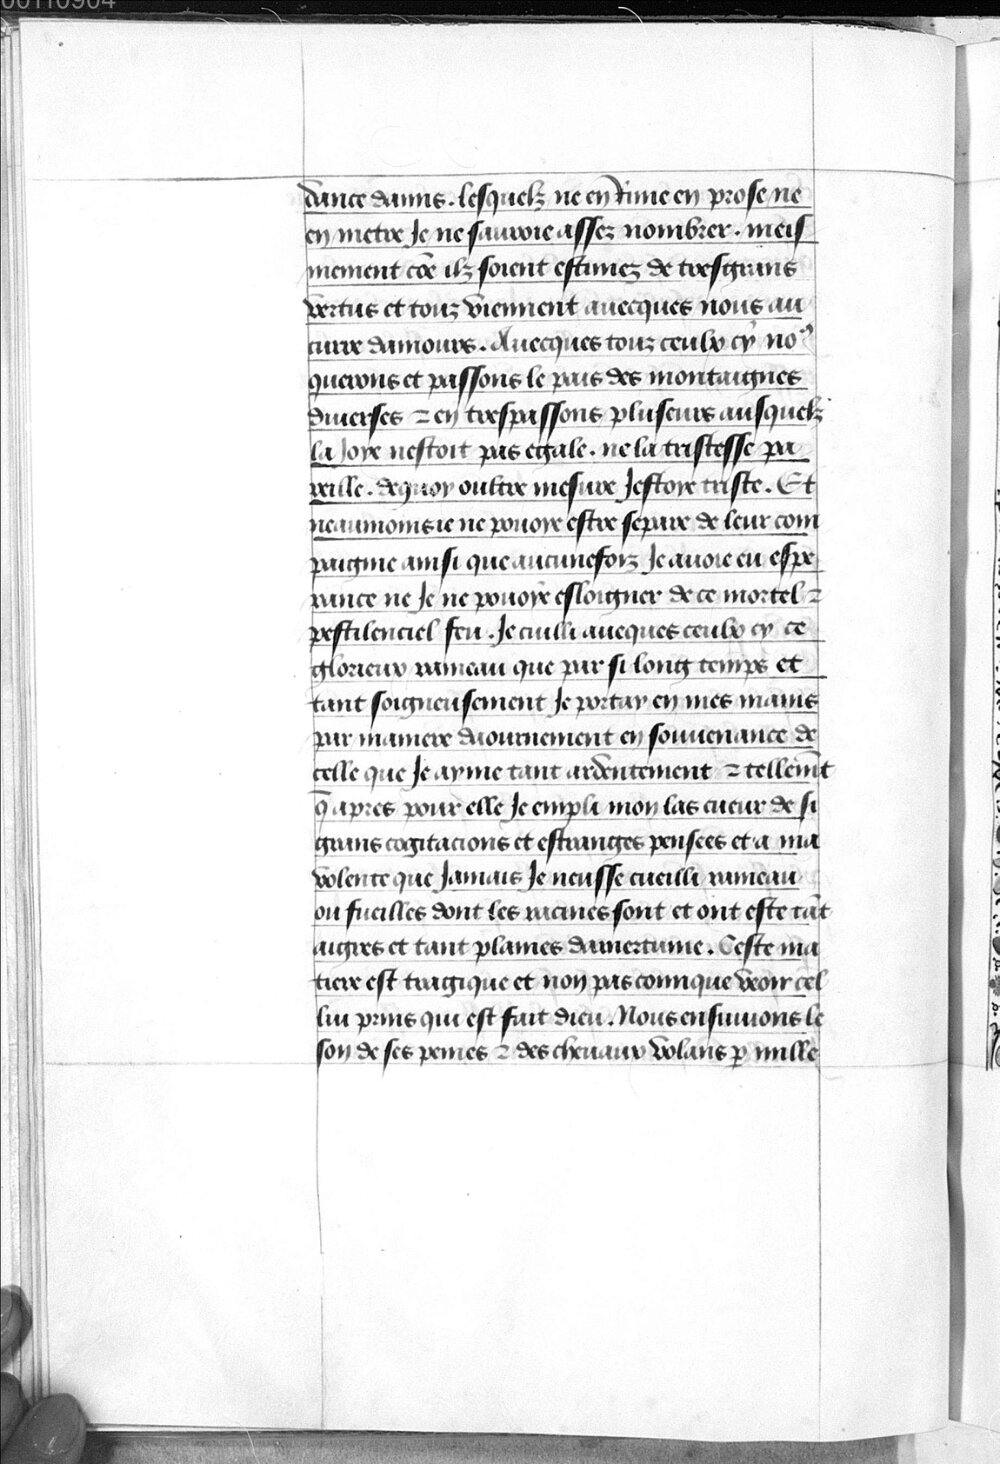 00110904
dance damis. lesquelz ne en Rime en prose ne
en metre Je ne sauroie assez nombrer. meis
mement cõe ilz soient estimez de tresgrans
vertus et touz viennent avecques nous au
curre damours. Avecques touz ceulx cy noꝰ
querons et passons le pais des montaignes
diverses ⁊ en trespassons pluseurs ausquelz
la Joye nestoit pas egale. ne la tristesse pa
reille. de quoy oultre mesure Jestoye triste. Et
neaumoins ie ne povoye estre separe de leur com
paignie ainsi que aucunefoiz Je avoie eu espe
rance ne Je ne povoye esloigner de ce mortel ⁊
pestilenciel feu. Je cuilli avecques ceulx cy ce
glorieux rameau que par si long temps et
tant soigneusement Je portay en mes mains
par maniere daournement en souvenance de
celle que Je ayme tant ardentement ⁊ tellemẽt
q̃ apres pour elle Je empli mon las cueur de si
grans cogitacions et estranges pensees et a ma
volente que Jamais Je neusse cueilli rameau
ou fueilles dont les racines sont et ont este tãt
aigres et tant plaines damertume. Ceste ma
tiere est tragique et non pas comique veoir cel
lui prins qui est fait dieu. Nous ensuivions le
son de ses pennes ⁊ des chevaux volans ꝑ mille